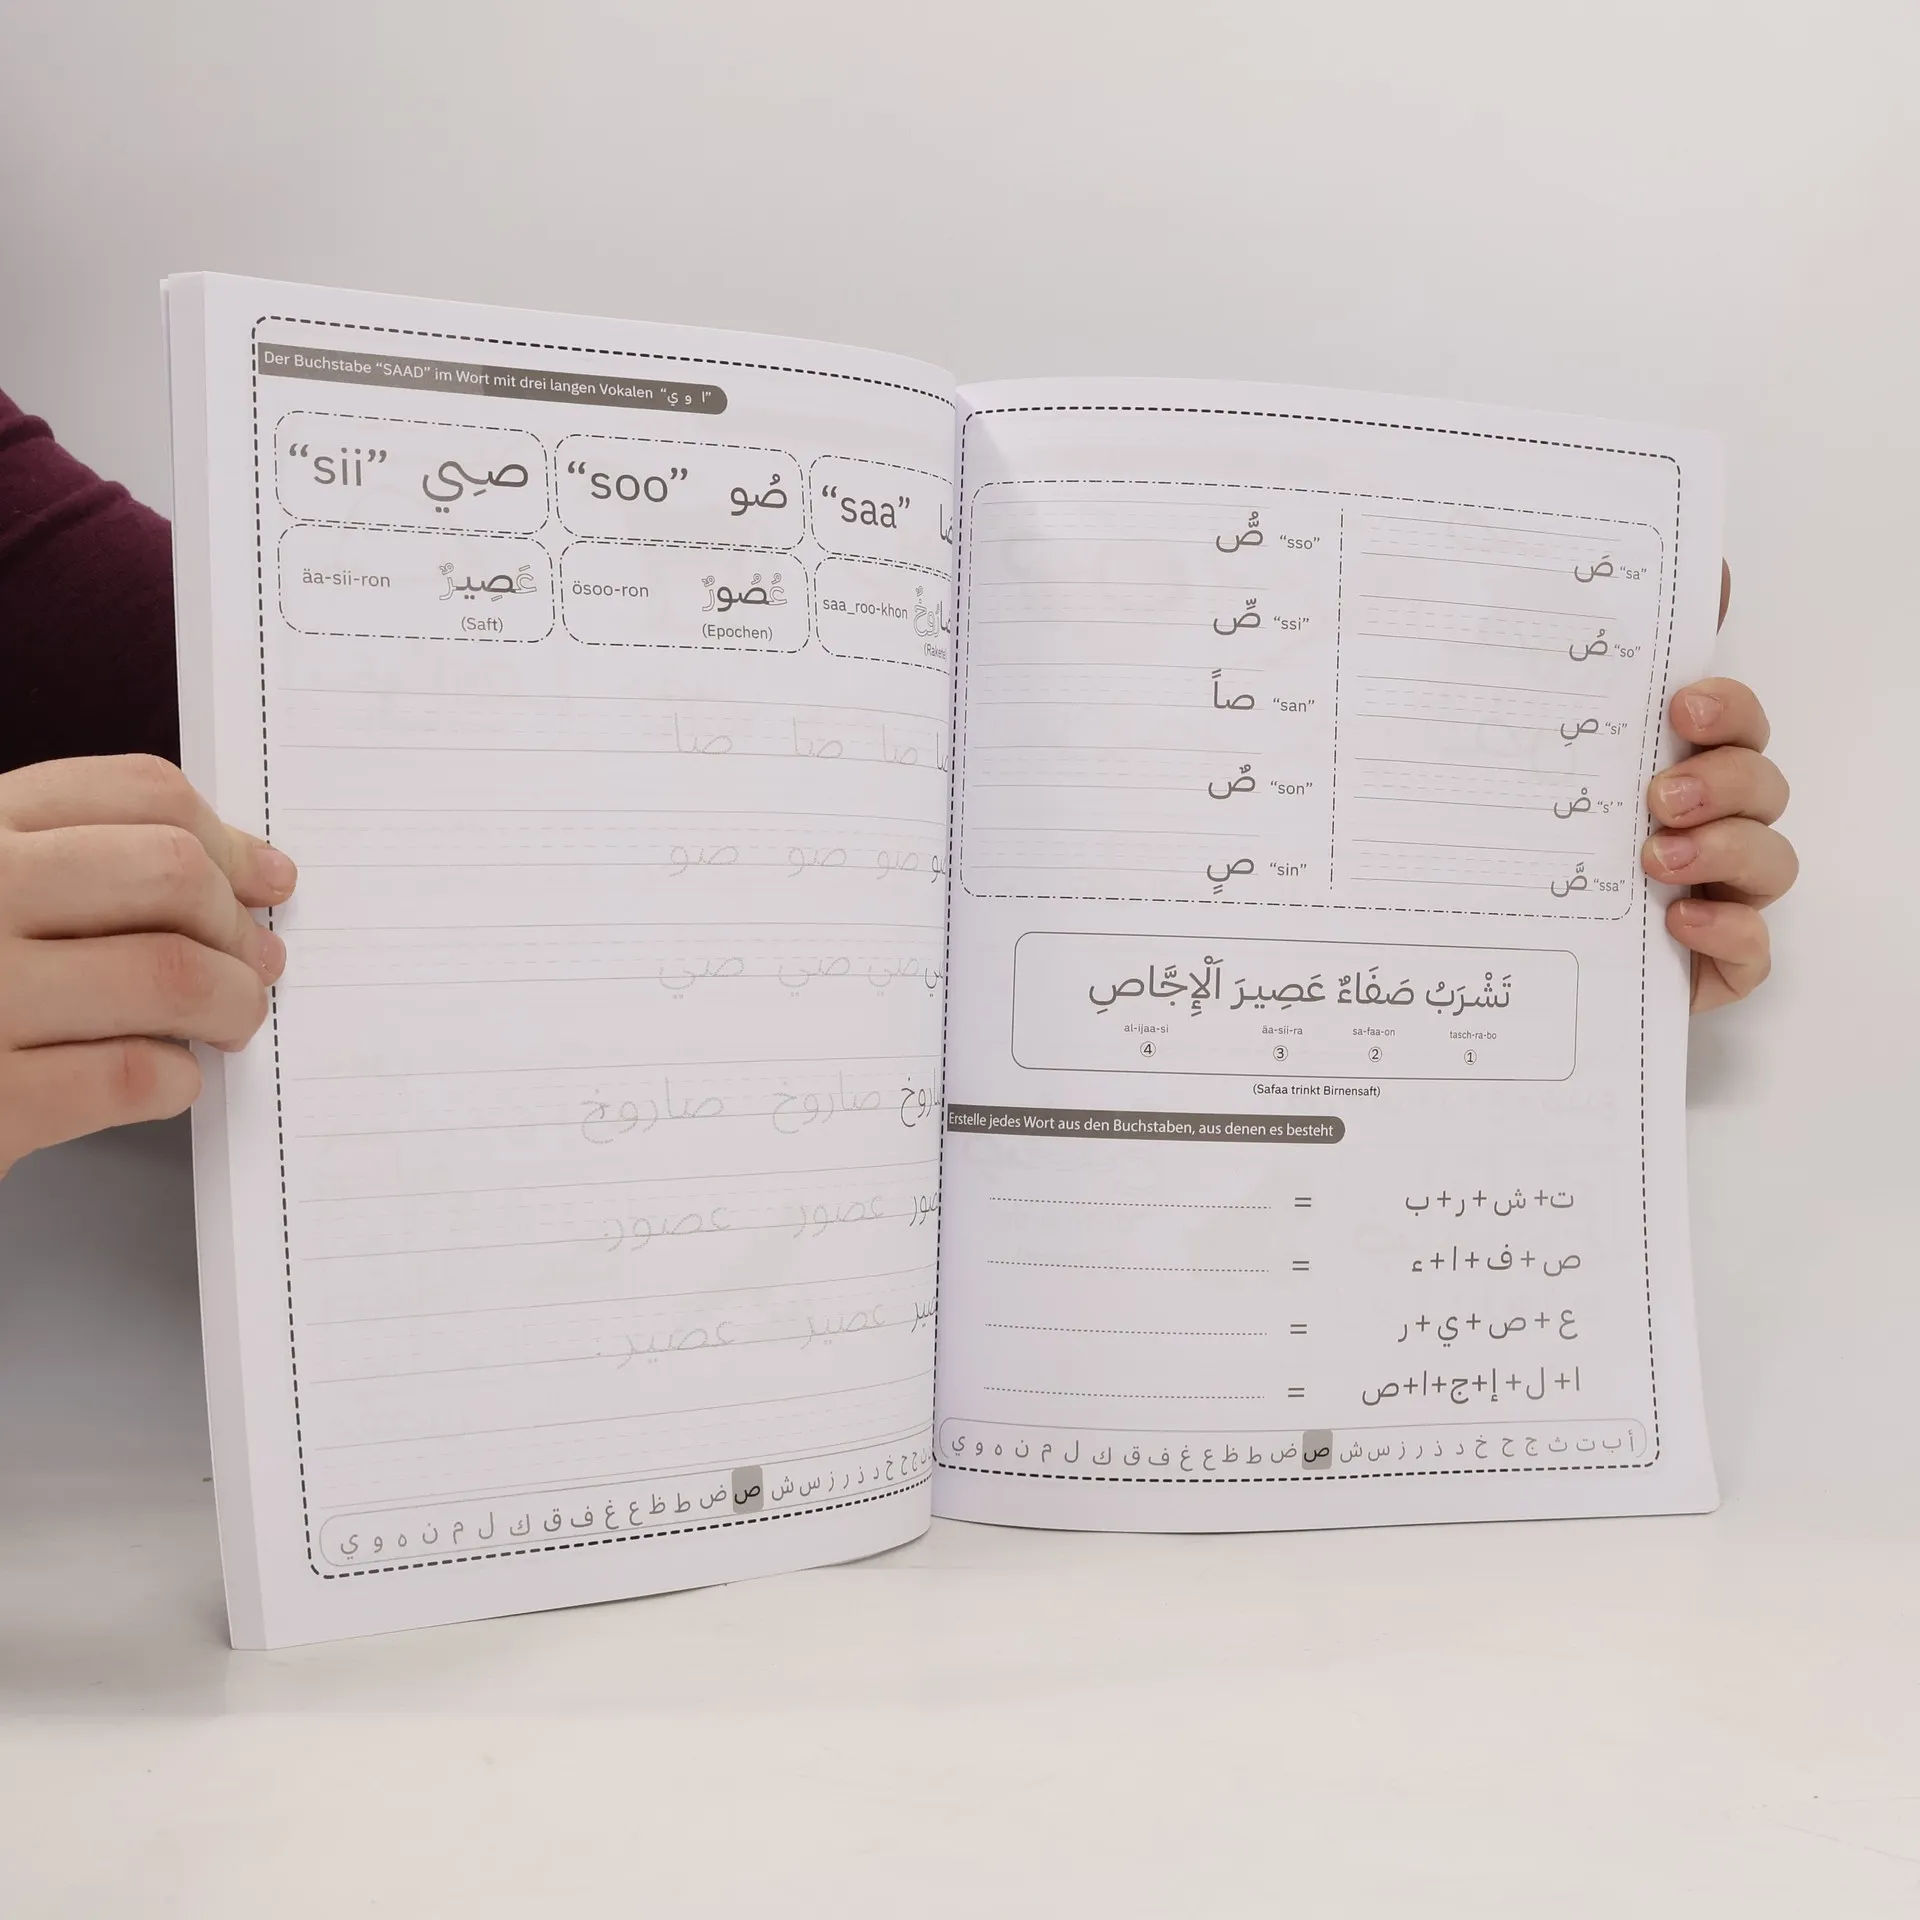 Der Buchstabe “SAAD” im Wort mit drei langen Vokalen “ا و ي”
“sii” صِي “soo” صُو “saa”
äa-sii-ron عَصِيرٌ ösoo-ron عُصُورٌ saa_roo-khon
(Saft) (Epochen)
صا صا صا
صو صو صو
صي صي صي
صاروخ صاروخ
عصور عصور
عصير عصير
ض ص ش س ز ر ذ د خ ح ج
ي و ه ن م ل ك ق ف غ ع ظ ط
صُّ “sso” صَ “sa”
صِّ “ssi” صُ “so”
صاً “san” صِ “si”
صٌ “son” صْ “s’ ”
صٍ “sin” صَّ “ssa”
تَشْرَبُ صَفَاءُ عَصِيرَ اَلْإِجَّاصِ
al-ijaa-si äa-sii-ra sa-faa-on tasch-ra-bo
④ ③ ② ①
(Safaa trinkt Birnensaft)
Erstelle jedes Wort aus den Buchstaben, aus denen es besteht
ت+ ش+ر+ب =
ص+ف+ا+ء =
ع+ص+ي+ر =
ا+ل+إ+ج+ا+ص =
أ ب ت ث ج ح خ د ذ ر ز س ش ص ض ط ظ ع غ ف ق ك ل م ن ه و ي